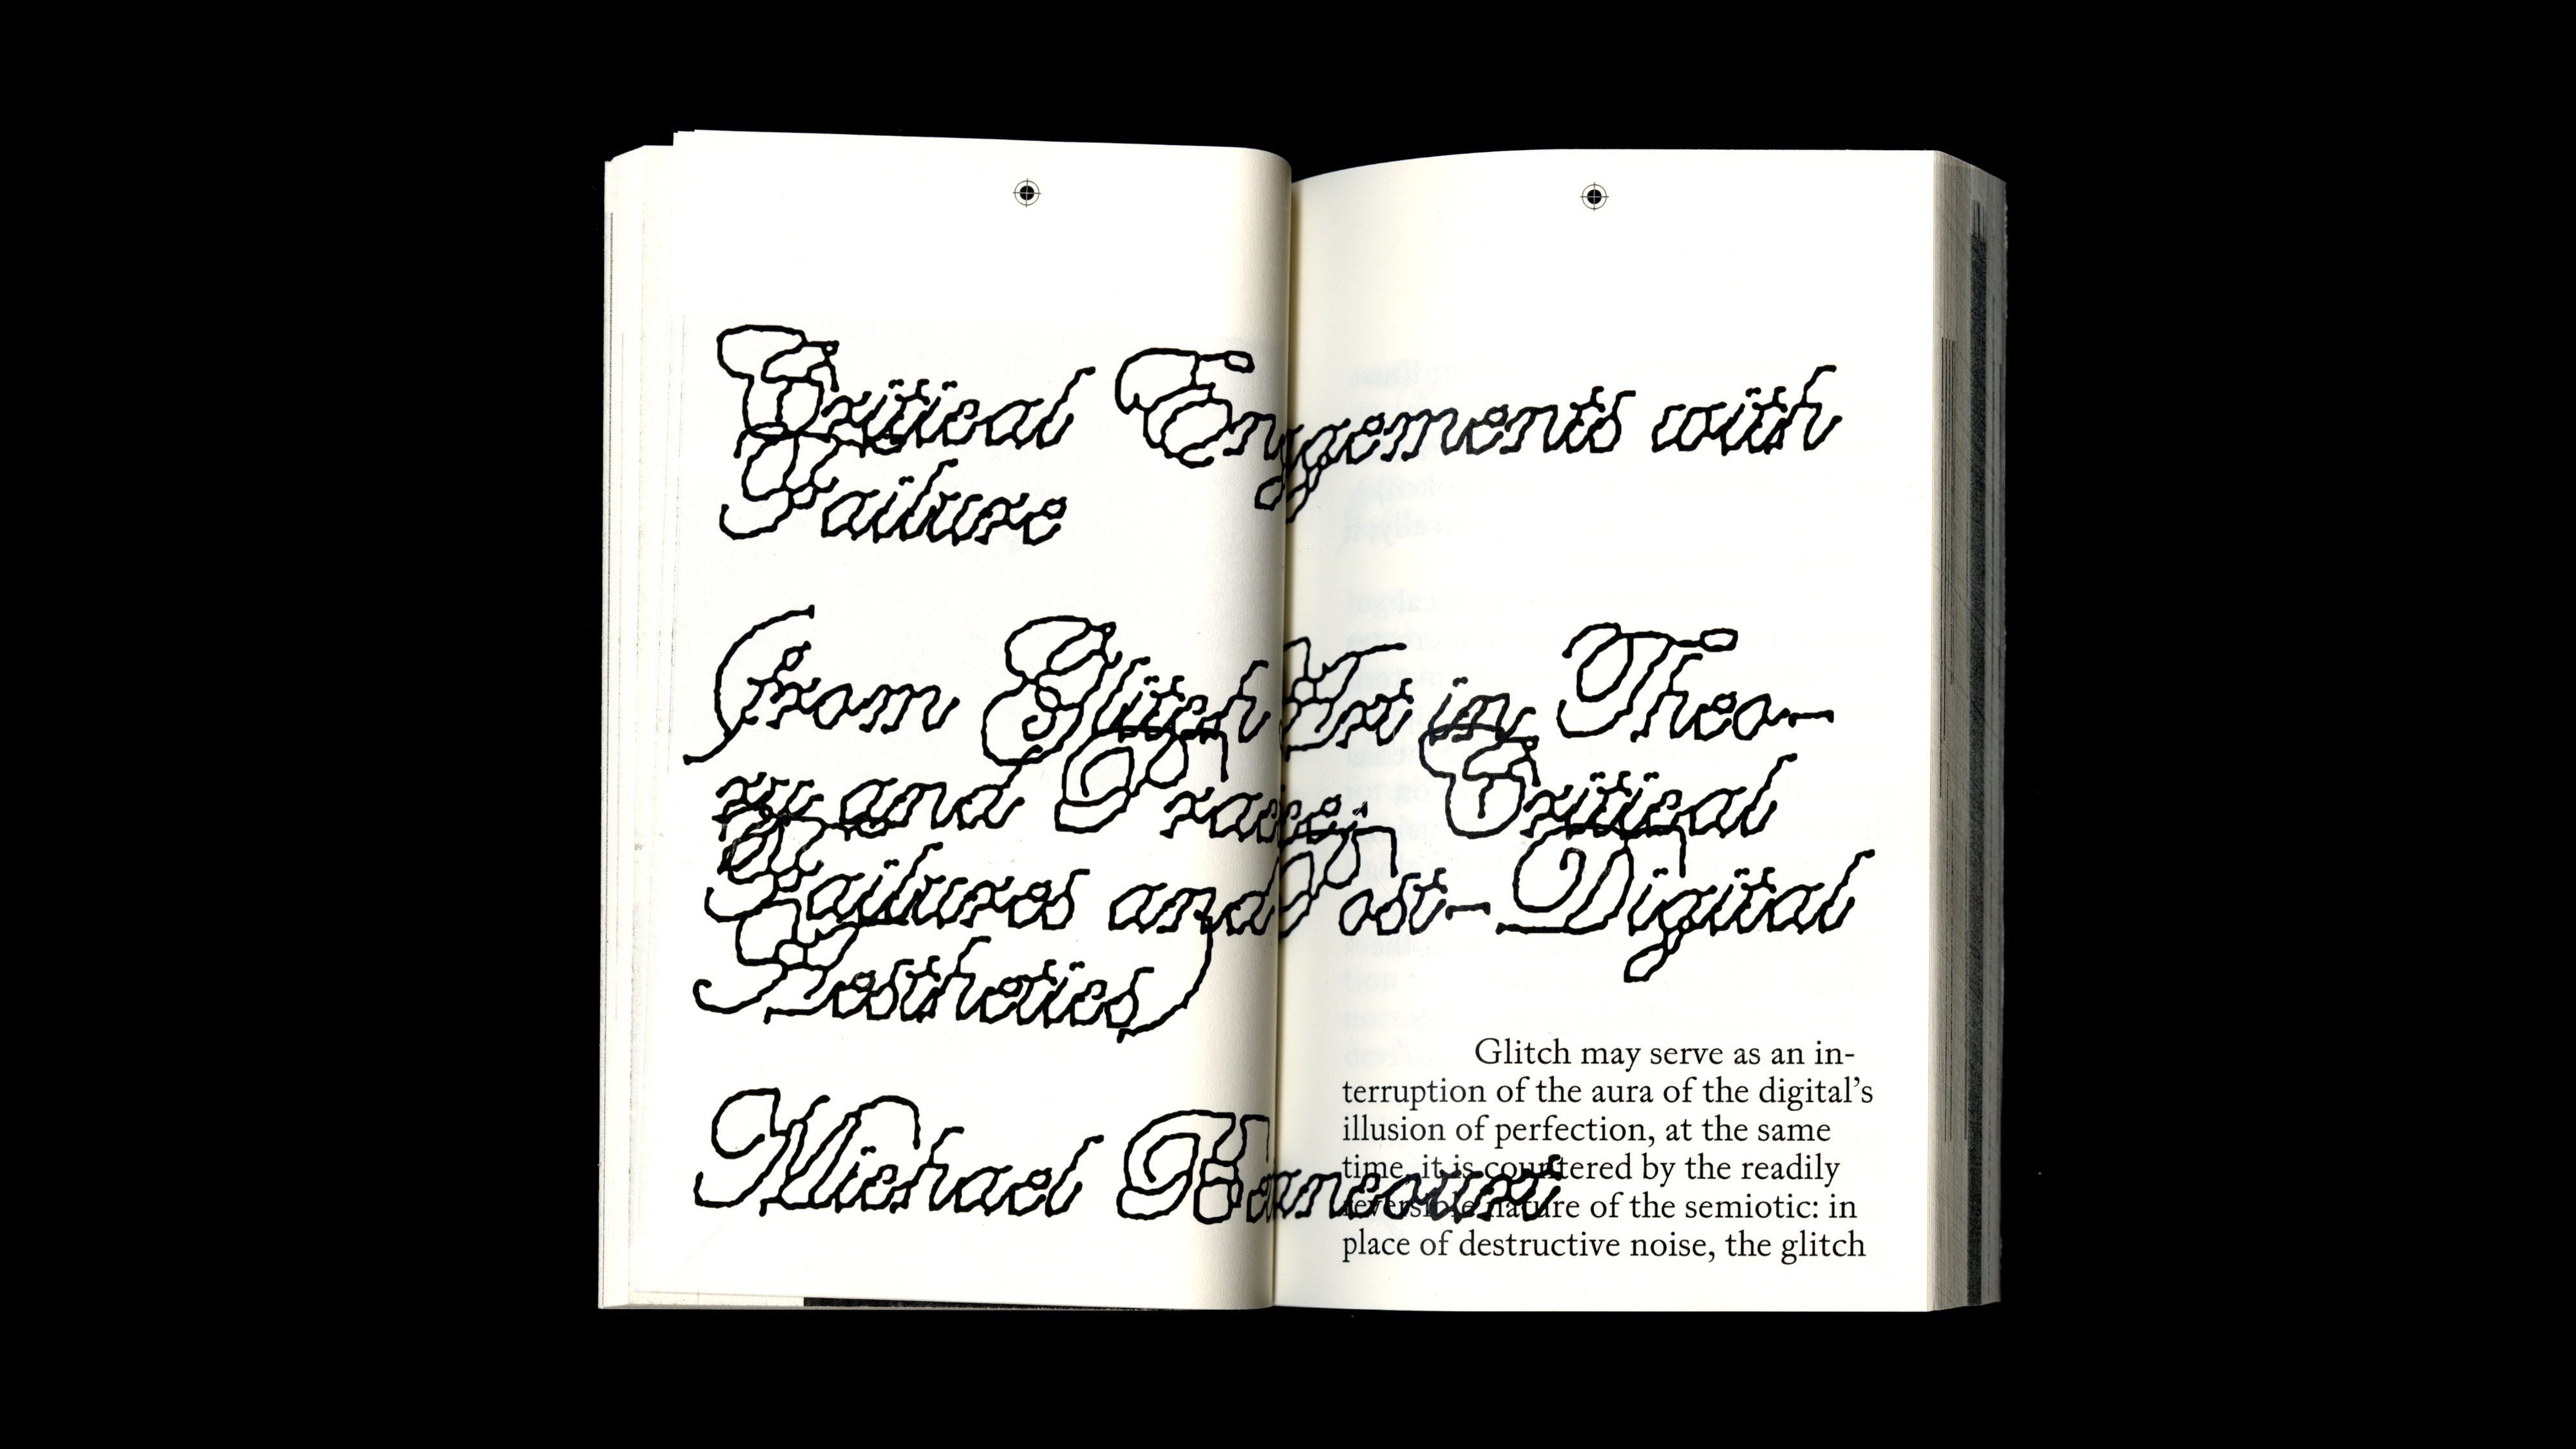 Critical Engagements with
Failure
from Glitch Art in Theo-
ry and Practice: Critical
Failures and Post-Digital
Aesthetics
Michael Betancourt
Glitch may serve as an in-
terruption of the aura of the digital’s
illusion of perfection, at the same
time, it is countered by the readily
reversible nature of the semiotic: in
place of destructive noise, the glitch